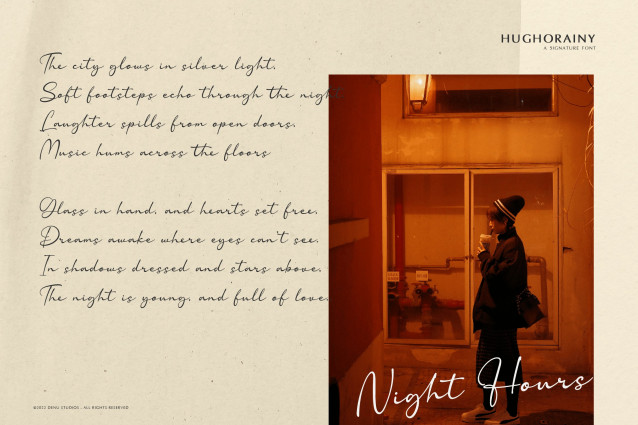 HUGHORAINY
A SIGNATURE FONT
The city glows in silver light,
Soft footsteps echo through the night.
Laughter spills from open doors,
Music hums across the floors
Glass in hand, and hearts set free,
Dreams awake where eyes can't see.
In shadows dressed and stars above,
The night is young, and full of love.
Night Hours
©2022 DENU STUDIOS . ALL RIGHTS RESERVED